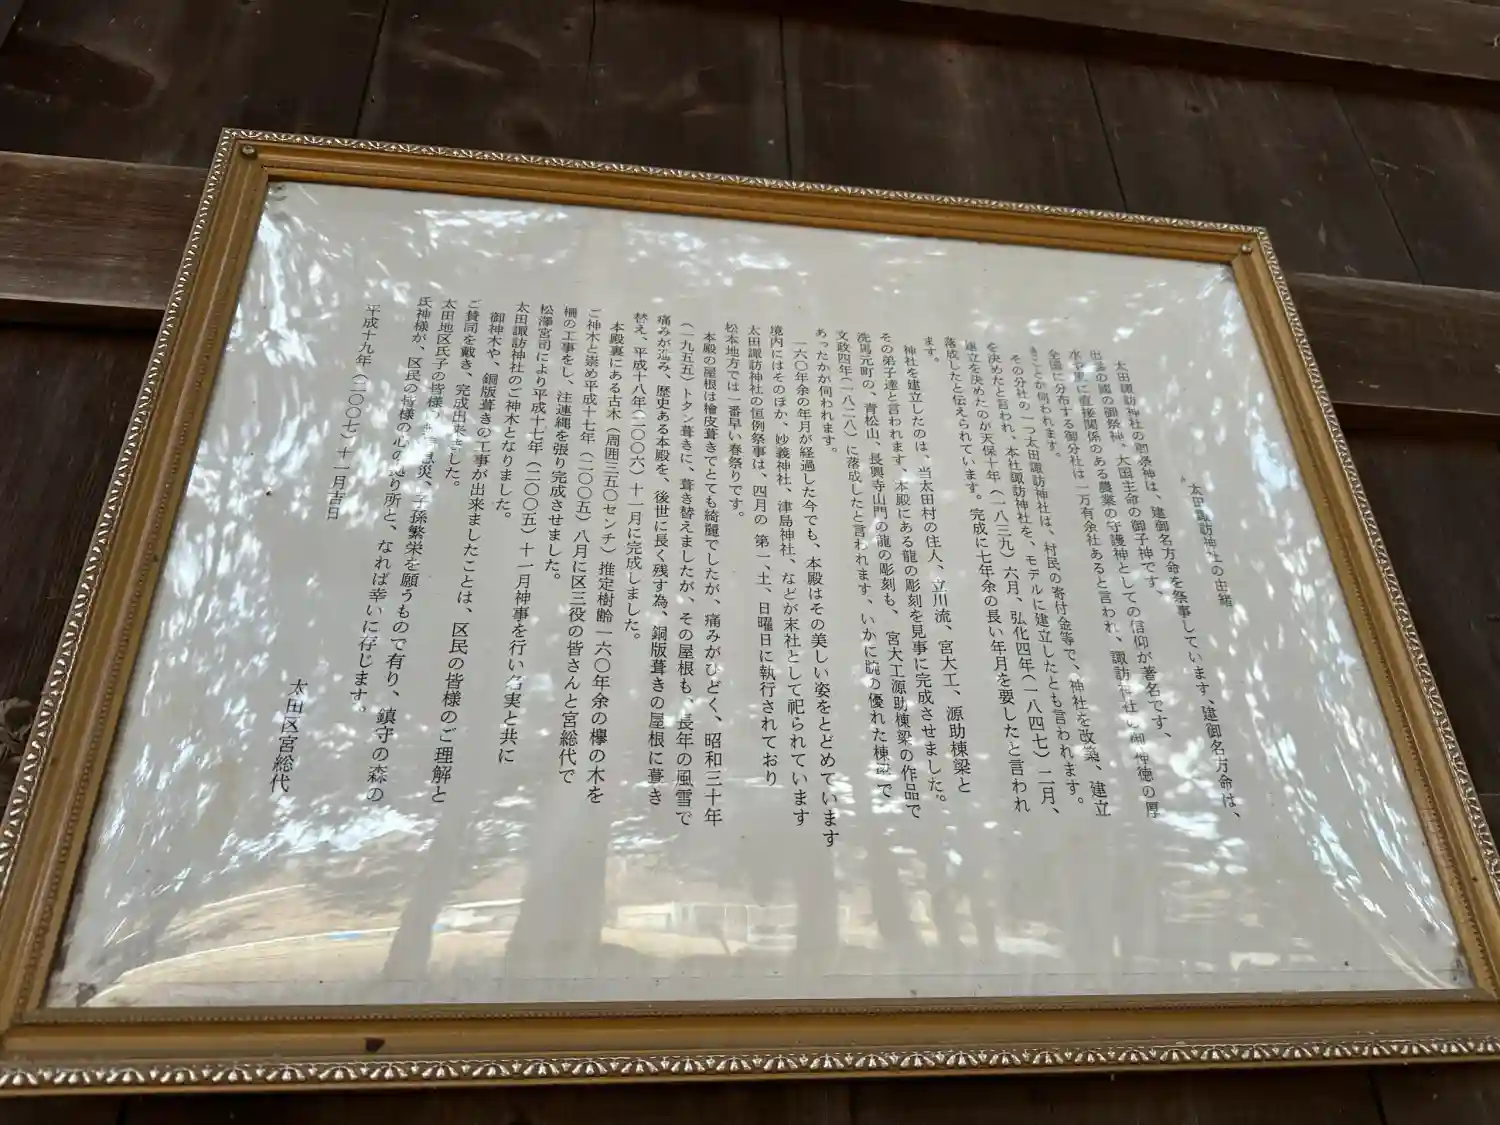 太田諏訪神社の由緒
太田諏訪神社の御祭神は、建御名方命を祭事しています、建御名方命は、
出雲の國の御祭神、大国主命の御子神です。
水や風に直接関係のある農業の守護神としての信仰が著名です、
全國に分布する御分社は一万有余社あると言われ、諏訪神社の御神徳の厚
きことが伺われます。
その分社の一つ太田諏訪神社は、村民の寄付金等で、神社を改築、建立
を決めたと言われ、本社諏訪神社を、モデルに建立したとも言われます。
建立を決めたのが天保十年(一八三九)六月、弘化四年(一八四七)二月、
落成したと伝えられています。完成に七年余の長い年月を要したと言われ
ます。
神社を建立したのは、当太田村の住人、立川流、宮大工、源助棟梁と
その弟子達と言われます、本殿にある龍の彫刻を見事に完成させました。
洗馬元町の、青松山、長興寺山門の龍の彫刻も、宮大工源助棟梁の作品で
文政四年(一八二八)に落成したと言われます、いかに腕の優れた棟梁で
あったかが伺われます。
一六〇年余の年月が経過した今でも、本殿はその美しい姿をとどめています
境内にはそのほか、妙義神社、津島神社、などが末社として祀られています
太田諏訪神社の恒例祭事は、四月の第一、土、日曜日に執行されており
松本地方では一番早い春祭りです。
本殿の屋根は檜皮葺きでとても綺麗でしたが、痛みがひどく、昭和三十年
(一九五五)トタン葺きに、葺き替えましたが、その屋根も、長年の風雪で
痛みが進み、歴史ある本殿を、後世に長く残す為、銅版葺きの屋根に葺き
替え、平成十八年(二〇〇六)十一月に完成しました。
本殿裏にある古木(周囲三五〇センチ)推定樹齢一六〇年余の欅の木を
ご神木と崇め平成十七年(二〇〇五)八月に区三役の皆さんと宮総代で
柵の工事をし、注連縄を張り完成させました。
松澤宮司により平成十七年(二〇〇五)十一月神事を行い名実と共に
太田諏訪神社のご神木となりました。
御神木や、銅版葺きの工事が出来ましたことは、区民の皆様のご理解と
ご賛司を戴き、完成出来ました。
太田地区氏子の皆様の、息災、子孫繁栄を願うもので有り、鎮守の森の
氏神様が、区民の皆様の心の拠り所と、なれば幸いに存じます。
平成十九年(二〇〇七)十一月吉日
太田区宮総代